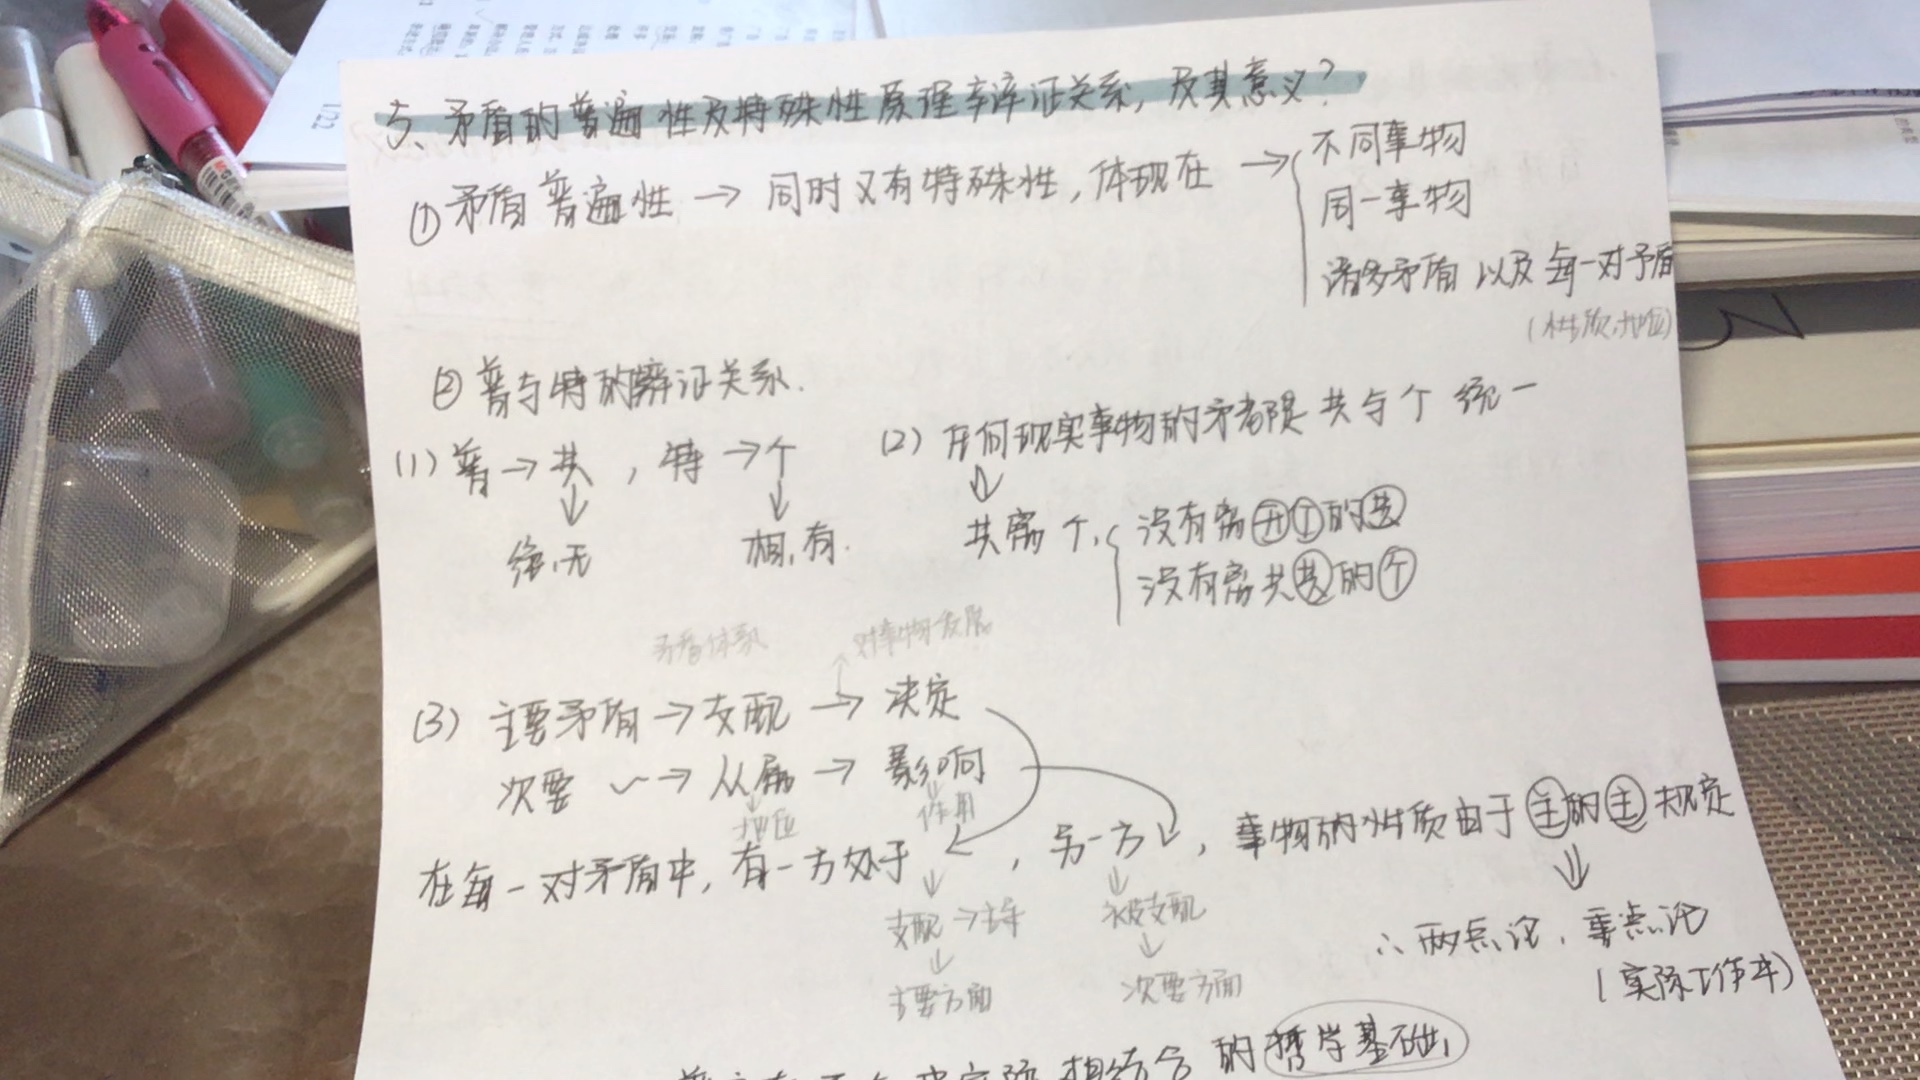 5、矛盾的普遍性及特殊性原理辛辩证关系，及其意义？
①矛盾普遍性 → 同时又有特殊性，体现在 → 不同事物
同一事物
诸多矛盾以及每一对矛盾
(性质、地位)
② 普与特的辨证关系.
(1) 普→共，特→个
↓ ↓
绝,无 相,有.
(2) 任何现实事物的矛都是共与个统一
↓
共离个, 没有离开个的共
没有离共共的个
矛盾体系 对事物发展
(3) 主要矛盾→支配→决定
次要 ～→从属→影响
地位 作用
在每一对矛盾中，有一方处于 ，另一方 ，事物的性质由于主的主规定
支配→主导 被支配
主要方面 次要方面
∴两点论，重点论
(实际工作中)
实际相结合的哲学基础，
122